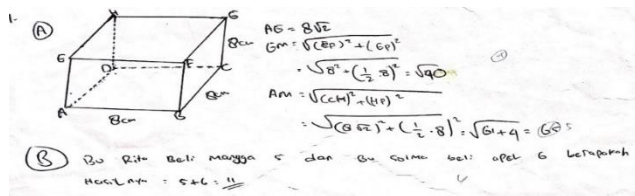 1.
A
H G
E F
D C
A B
8cm
8cm
8cm
AG = 8√2
GM = √(BP)² + (GP)²
= √8² + (½ . 8)² = √90
AM = √(CH)² + (HP)²
= √(8√2)² + (½ . 8)² = √61+4 = 65
B Bu Rita Beli mangga 5 dan Bu Salma beli apel 6 berapakah
Hasilnya = 5+6 = 11